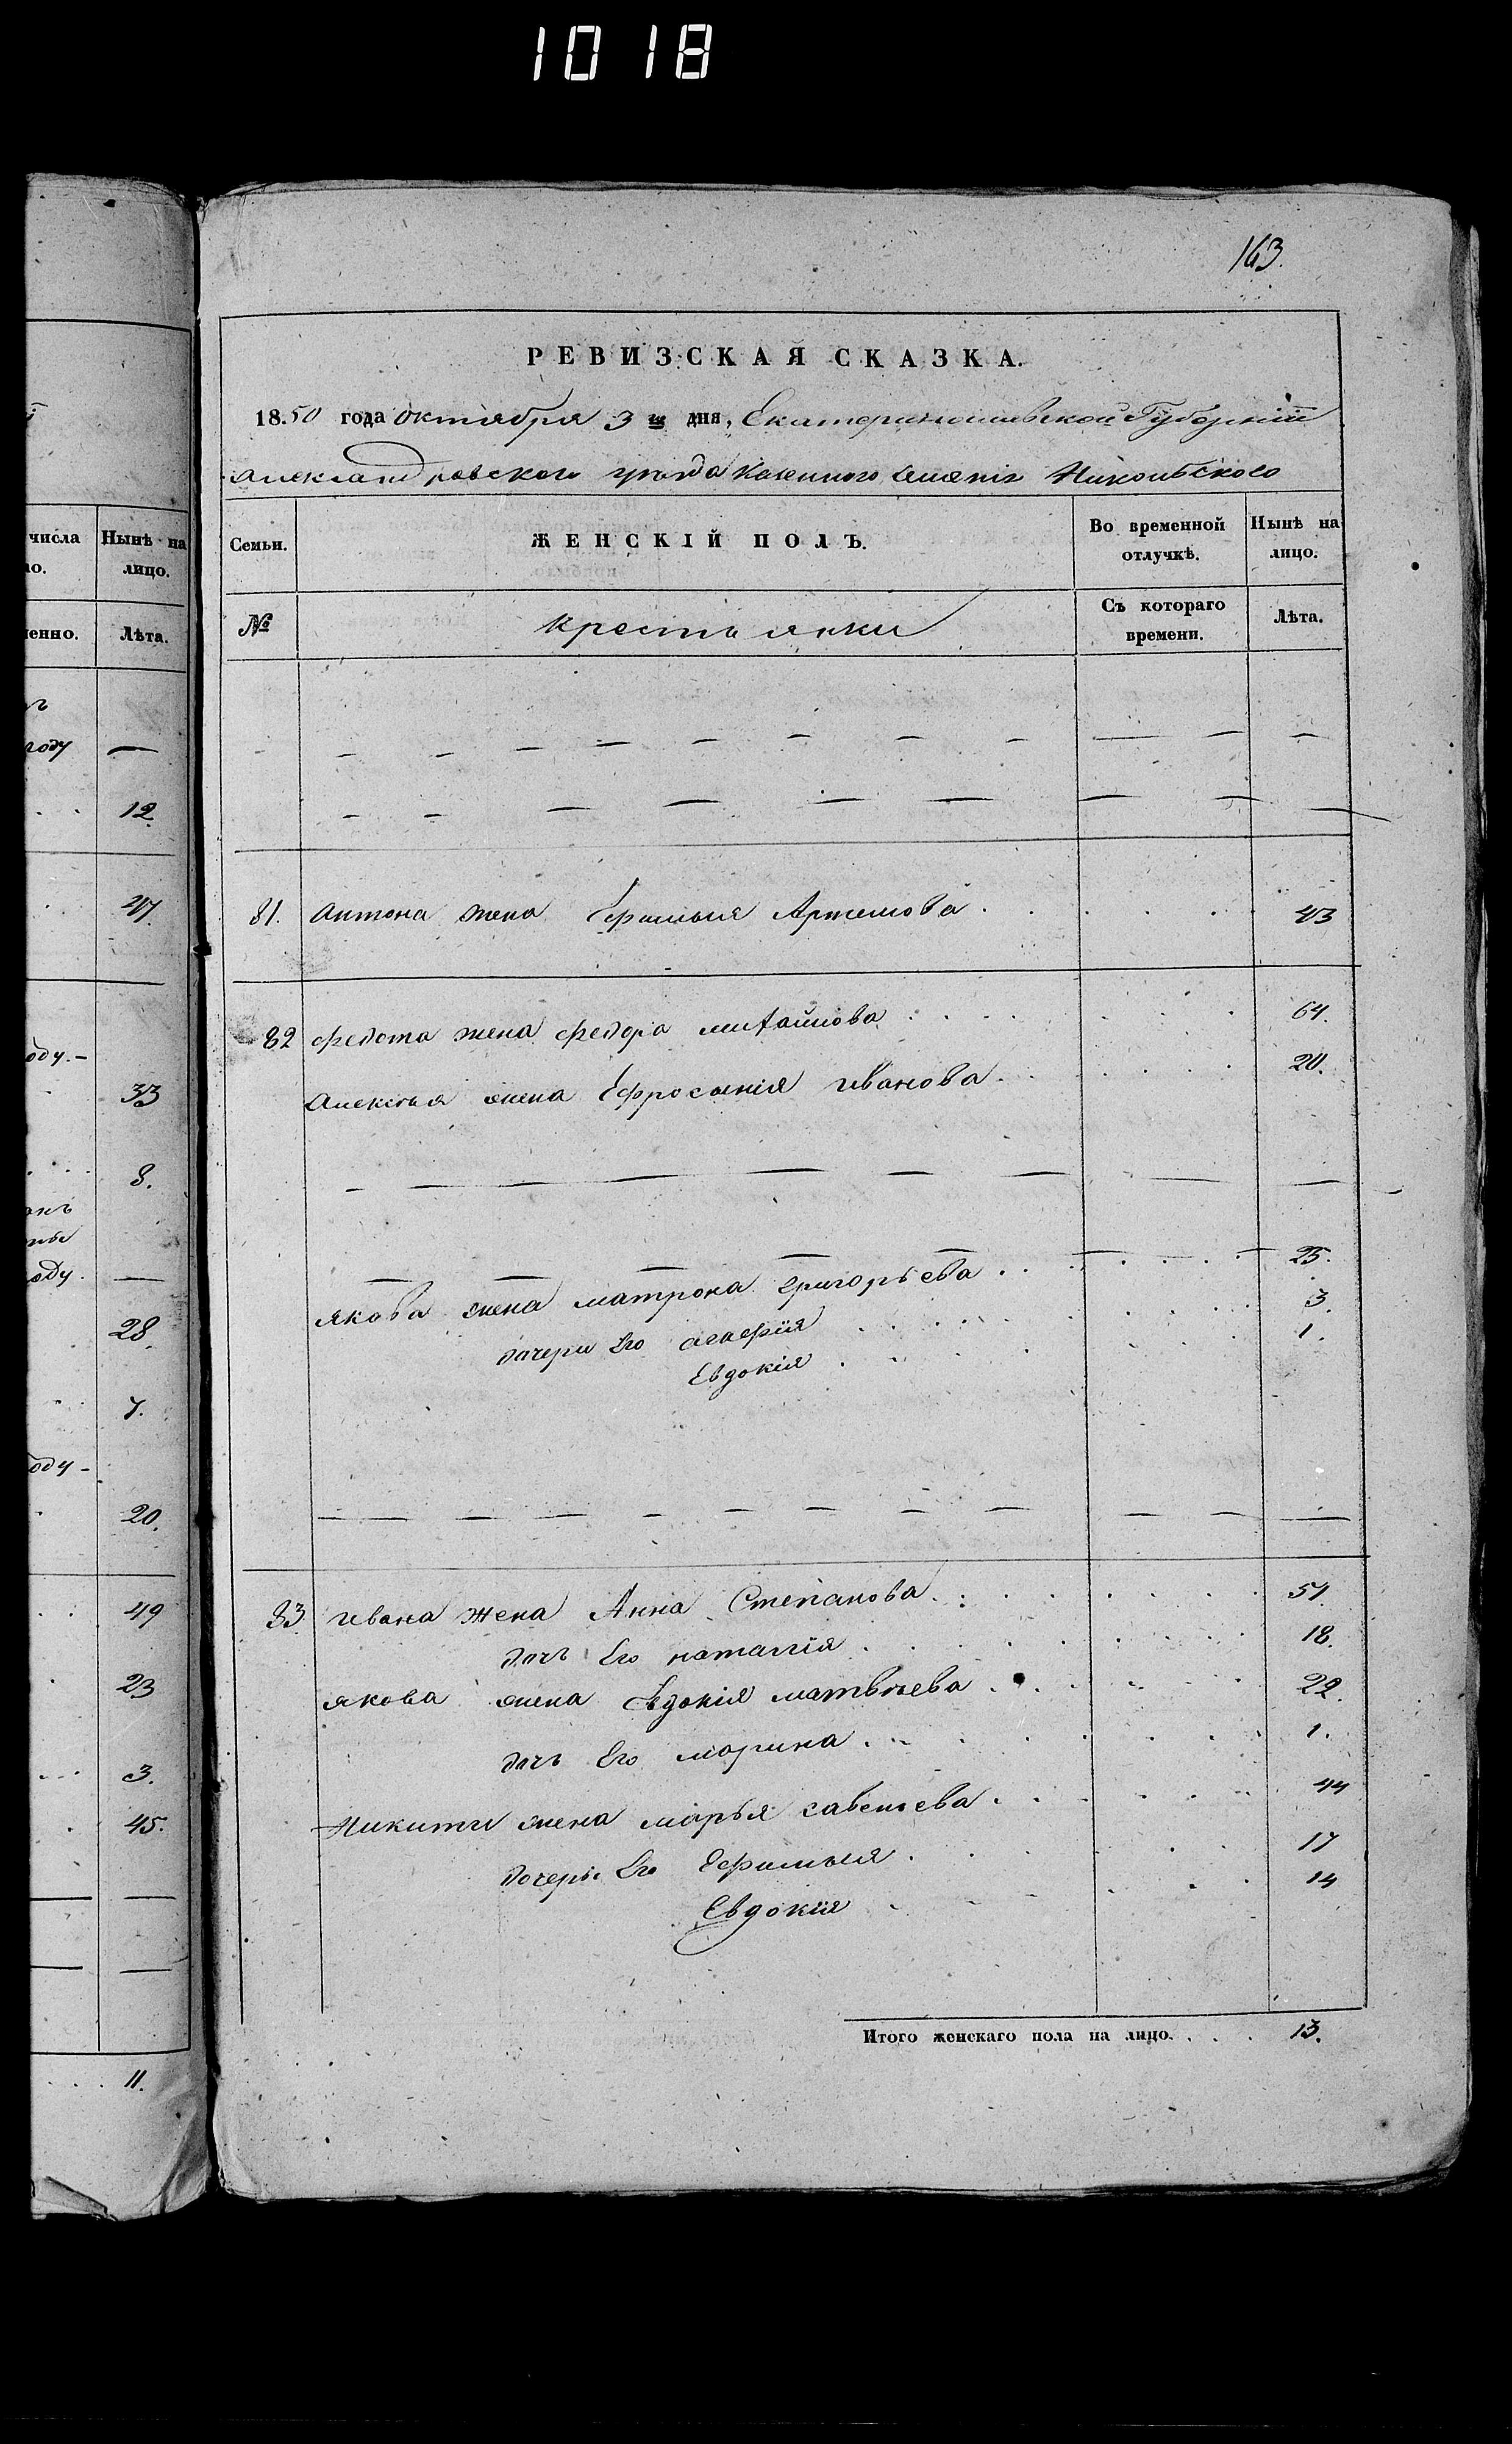 1018
ї
числа
Нынѣ на
ло.
лицо.
менно.
Лѣта.
году —
12.
47
оду. –
33
8.
оду. —
28.
7.
оду –
20.
49
23
3.
45.
11.
163.
РЕВИЗСКАЯ СКАЗКА.
1850 года октября 3го дня, Екатеринославской Губернїи
Александровского уѣзда казенного селенїя Никольского
Семьи. ЖЕНСКІЙ ПОЛЪ. Во временной отлучкѣ. Нынѣ на лицо.
№ крестьянки Съ котораго времени. Лѣта.
81. Антона жена Ефимья Артемова 43
82 Федота жена Федора михайлова 64.
Алексѣя жена Ефросинія иванова 20.
Якова жена матрона григорьева 25.
дочери Его агафія 3.
Евдокія 1.
83. ивана жена Анна Степанова 51.
дочь Его наталія 18.
якова жена Евдокія матвѣева 22.
дочь Его марина 1.
Никиты жена марья савельева 44
дочери Его Ефимья 17
Евдокїя 14
Итого женскаго пола на лицо. 13.